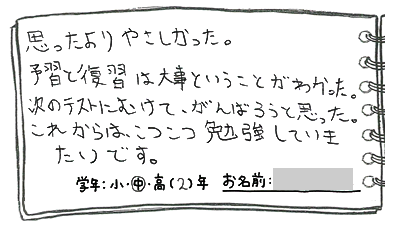 思ったよりやさしかった。
予習と復習は大事ということがわかった。
次のテストにむけて、がんばろうと思った。
これからは、こつこつ勉強していき
たいです。
学年:小・㊥・高(2)年 お名前: